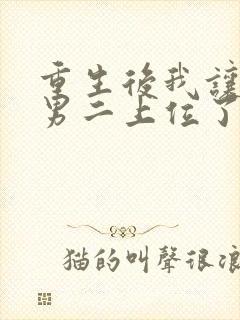 重生後我讓
男二上位了
猫的叫聲很浪